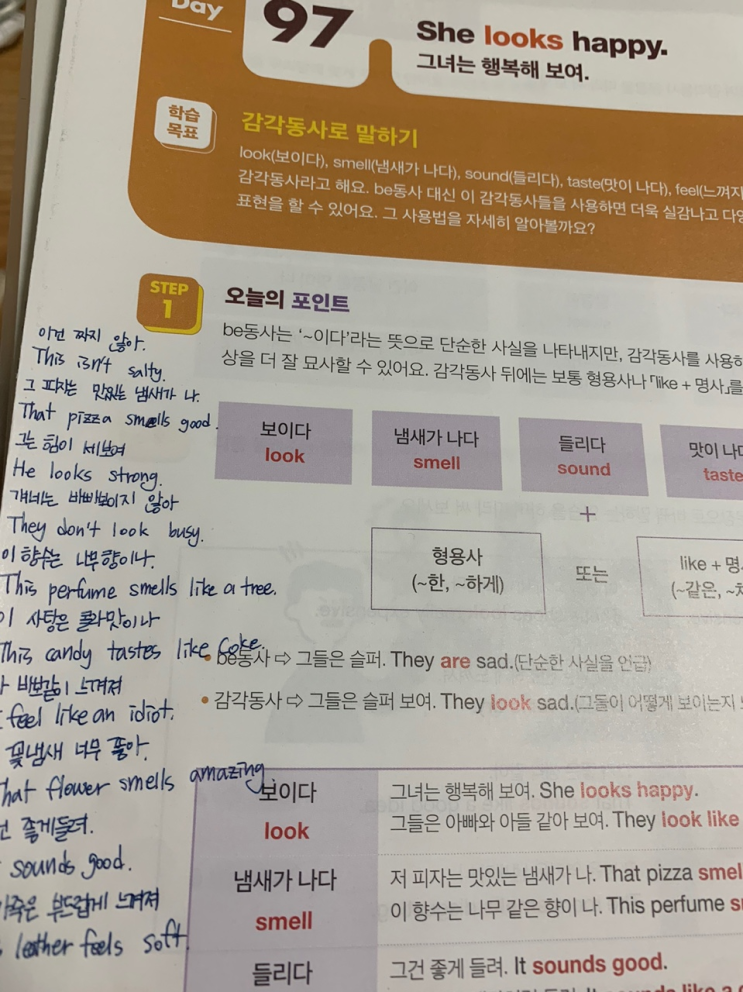 Day
97
She looks happy.
그녀는 행복해 보여.
학습
목표
감각동사로 말하기
look(보이다), smell(냄새가 나다), sound(들리다), taste(맛이 나다), feel(느껴지
감각동사라고 해요. be동사 대신 이 감각동사들을 사용하면 더욱 실감나고 다양
표현을 할 수 있어요. 그 사용법을 자세히 알아볼까요?
STEP
1
오늘의 포인트
be동사는 '~이다'라는 뜻으로 단순한 사실을 나타내지만, 감각동사를 사용하
상을 더 잘 묘사할 수 있어요. 감각동사 뒤에는 보통 형용사나 「like + 명사」를
보이다
look
냄새가 나다
smell
들리다
sound
맛이 나다
taste
+
형용사
(~한, ~하게)
또는
like + 명
(~같은, ~처
• be동사 ⇨ 그들은 슬퍼. They are sad.(단순한 사실을 언급)
• 감각동사 ⇨ 그들은 슬퍼 보여. They look sad.(그들이 어떻게 보이는지
보이다
look
그녀는 행복해 보여. She looks happy.
그들은 아빠와 아들 같아 보여. They look like
냄새가 나다
smell
저 피자는 맛있는 냄새가 나. That pizza smel
이 향수는 나무 같은 향이 나. This perfume s
들리다
그건 좋게 들려. It sounds good.
이건 짜지 않아.
This isn't salty.
그 피자는 맛있는 냄새가 나.
That pizza smells good.
그는 힘이 세보여
He looks strong.
걔네는 바빠보이지 않아
They don't look busy.
이 향수는 나무향이나.
This perfume smells like a tree.
이 사탕은 콜라맛이나
This candy tastes like Coke.
바보같이 느껴져
feel like an idiot.
꽃냄새 너무 좋아.
That flower smells amazing
좋게들려.
sounds good.
가죽은 부드럽게 느껴져
leather feels soft.